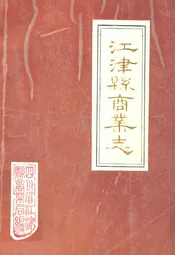 江津縣商業志
四川省江津
縣商業局編